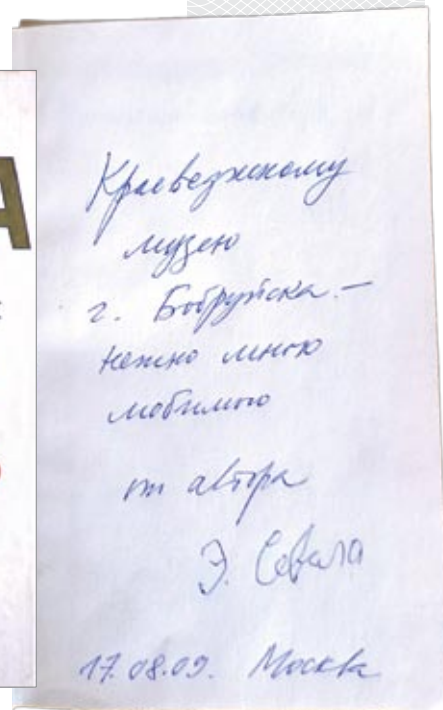 А
Краеведческому
музею
г. Бобруйска –
нежно мною
любимого
от автора
Э. Севела
17.08.09. Москва